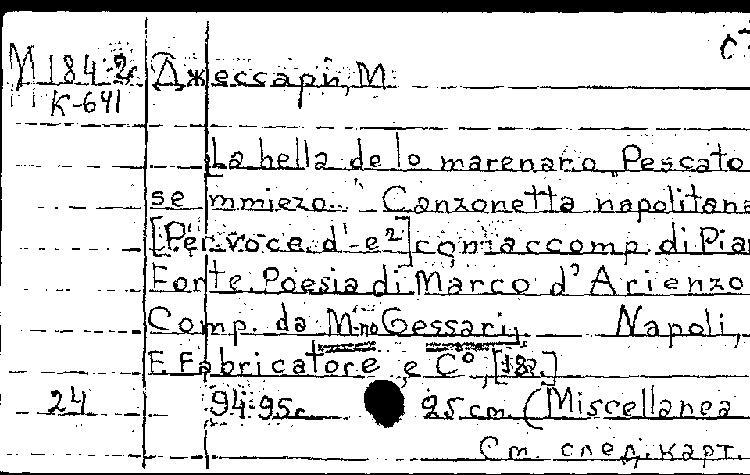 М 184-2 Джессари, М.
К-641
La bella de lo marenaro "Pescato
se mmiezo..." Canzonetta napolitana
[Per voce d¹-e²] con accomp. di Pian
Forte. Poesia di Marco d'Arienzo
Comp. da M-no Gessari. Napoli,
F. Fabricatore e C°, [18?.]
24 94-95с. 25 cm. (Miscellanea
См. след. карт.